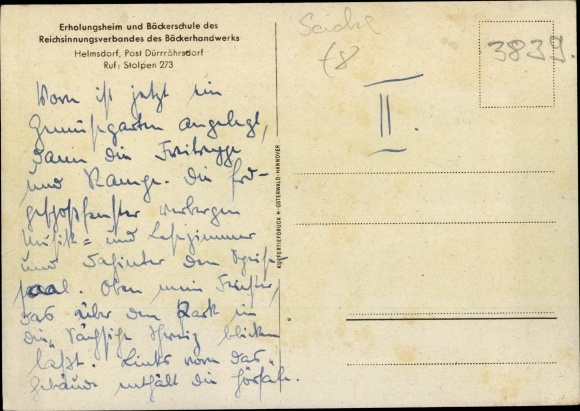 Erholungsheim und Bäckerschule des
Reichsinnungsverbandes des Bäckerhandwerks
Helmsdorf, Post Dürrröhrsdorf
Ruf: Stolpen 273
Vorn ist jetzt ein
Gemüsegarten angelegt,
dann die Freitreppe
und Rampe. Die Erd-
geschoßfenster verbergen
Musik= und Lesezimmer
und dahinter den Speise-
saal. Oben mein Fenster,
das über den Park in
die „Sächsische Schweiz blicken
läßt. Links vorn das
Gebäude enthält die Hörsäle.
KUPFERTIEFDRUCK H. OSTERWALD-HANNOVER
II.
48
3839.